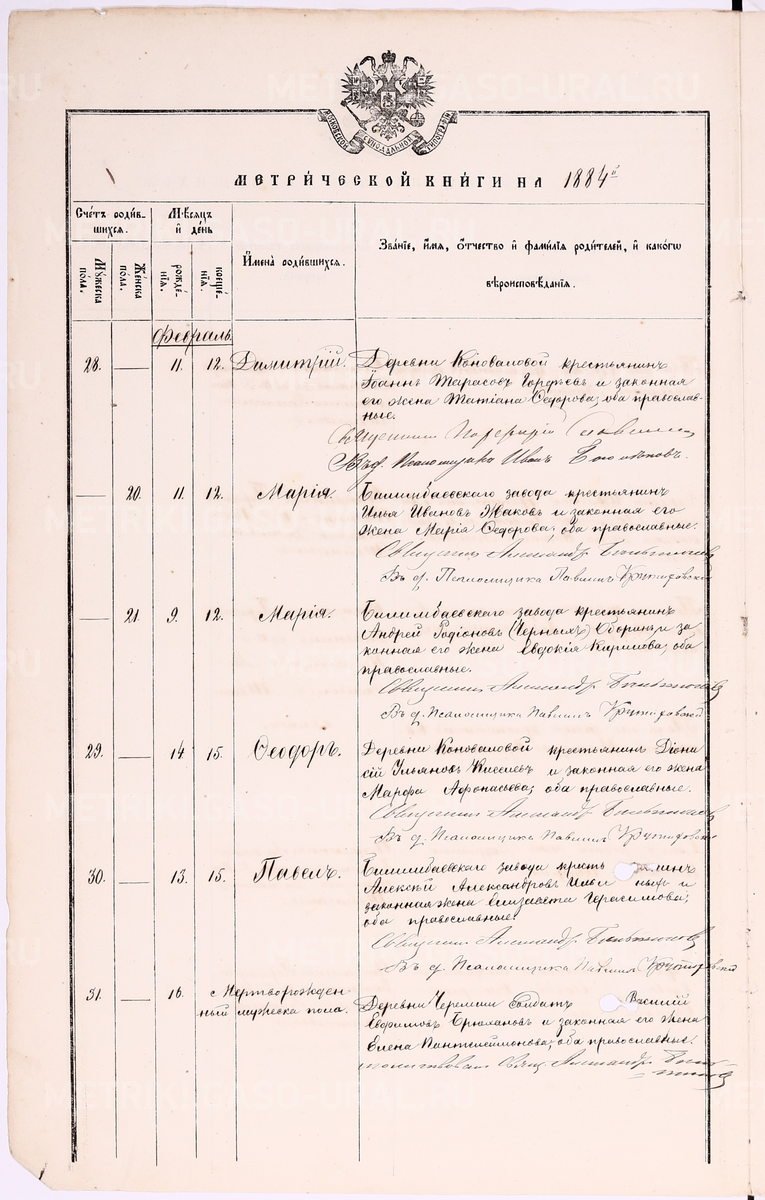 МОСКОВСКОЙ СѴНОДАЛЬНОЙ ТИПОГРАФІИ
МЕТРИ́ЧЕСКОЙ КНИ́ГИ НА 1884й
Сче́тъ роди́вшихся.
Мꙋ́жеска по́ла.
Же́нска по́ла.
Мѣ́сѧцъ и҆ де́нь
рожде́нїѧ.
креще́нїѧ.
И҆мена̀ роди́вшихся.
Зва́нїе, и҆́мѧ, ѻ҆́тчество и҆ фами́лїѧ роди́телей, и҆ како́гѡ
вѣроисповѣ́данїѧ.
Февраль.
28. — 11. 12. Димитрій. Деревни Коноваловой крестьянинъ
Іоаннъ Тарасовъ Гордѣевъ и законная
его жена Татіана Ѳедорова; оба православ-
ные.
Священникъ
Въ д. Псаломщика Иванъ
— 20. 11. 12. Марія. Билимбаевскаго завода крестьянинъ
Илья Ивановъ Жаковъ и законная его
жена Марія Ѳедорова; оба православные.
Священникъ Александръ
Въ д. Псаломщика Павлинъ
— 21. 9. 12. Марія. Билимбаевскаго завода крестьянинъ
Андрей Родіоновъ (Черныхъ) Сборинъ, и за
конная его жена Евдокія Кирилова; оба
православные.
Священникъ Александръ
Въ д. Псаломщика Павлинъ
29. — 14. 15. Ѳеодоръ. Деревни Коноваловой крестьянинъ Діони
сій Ульяновъ Киселевъ и законная его жена
Марфа Афонасьева; оба православные.
Священникъ Александръ
Въ д. Псаломщика Павлинъ
30. — 13. 15. Павелъ. Билимбаевскаго завода кресть янинъ
Алексѣй Александровъ ныхъ и
законная жена Елизавета Герасимова;
оба православные.
Священникъ Александръ
Въ д. Псаломщика Павлинъ
31. — 16. Мертворожден
ный мужеска пола. Деревни Черемши Солдатъ Василій
Евфимовъ Брюхановъ и законная его жена
Елена Пантелеймонова; оба православные.
Александръ